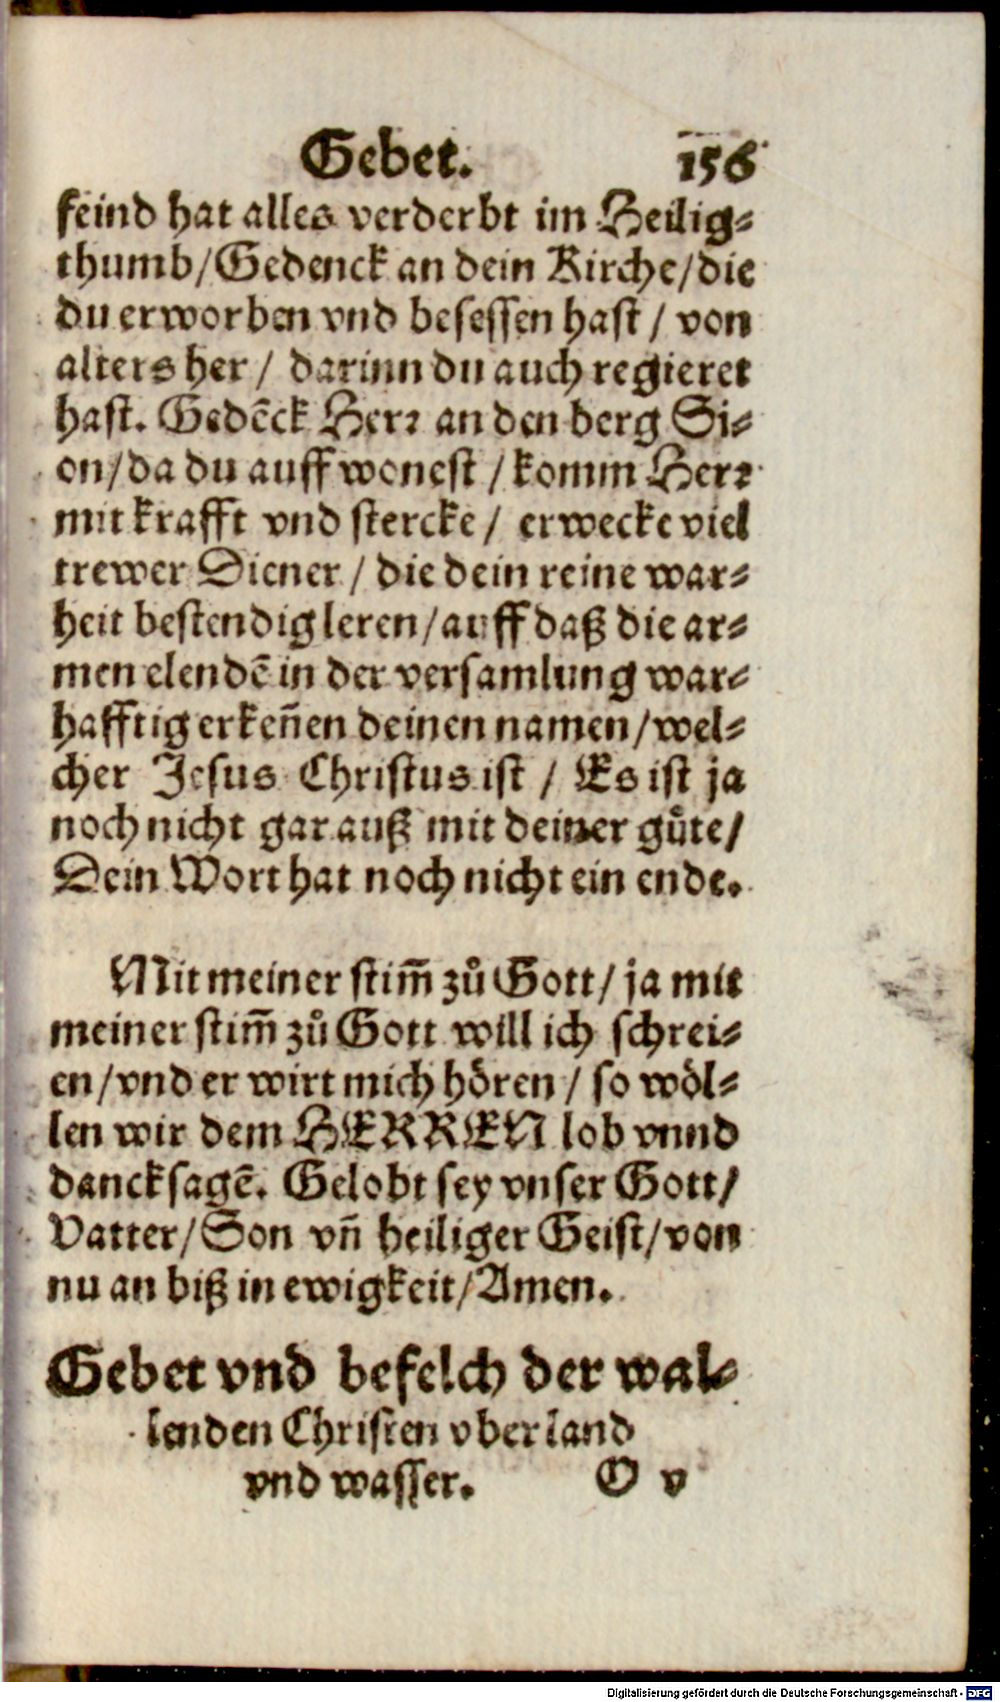 Gebet. 156
feind hat alles verderbt im Heilig⸗
thumb/Gedenck an dein Kirche/die
du erworben vnd besessen hast / von
alters her / darinn du auch regieret
hast. Gedẽck Herꝛ an den berg Si⸗
on/da du auff wonest / komm Herꝛ
mit krafft vnd stercke / erwecke viel
trewer Diener / die dein reine war⸗
heit bestendig leren/auff daß die ar⸗
men elendẽ in der versamlung war⸗
hafftig erkeñen deinen namen/wel⸗
cher Jesus Christus ist / Es ist ja
noch nicht gar auß mit deiner guͤte/
Dein Wort hat noch nicht ein ende.
Mit meiner stim̃ zů Gott/ ja mit
meiner stim̃ zů Gott will ich schrei⸗
en/vnd er wirt mich hoͤren / so woͤl⸗
len wir dem HERREN lob vnnd
dancksagẽ. Gelobt sey vnser Gott/
Vatter/Son vñ heiliger Geist/von
nu an biß in ewigkeit/Amen.
Gebet vnd befelch der wal⸗
lenden Christen vber land
vnd wasser. O v
Digitalisierung gefördert durch die Deutsche Forschungsgemeinschaft - DFG